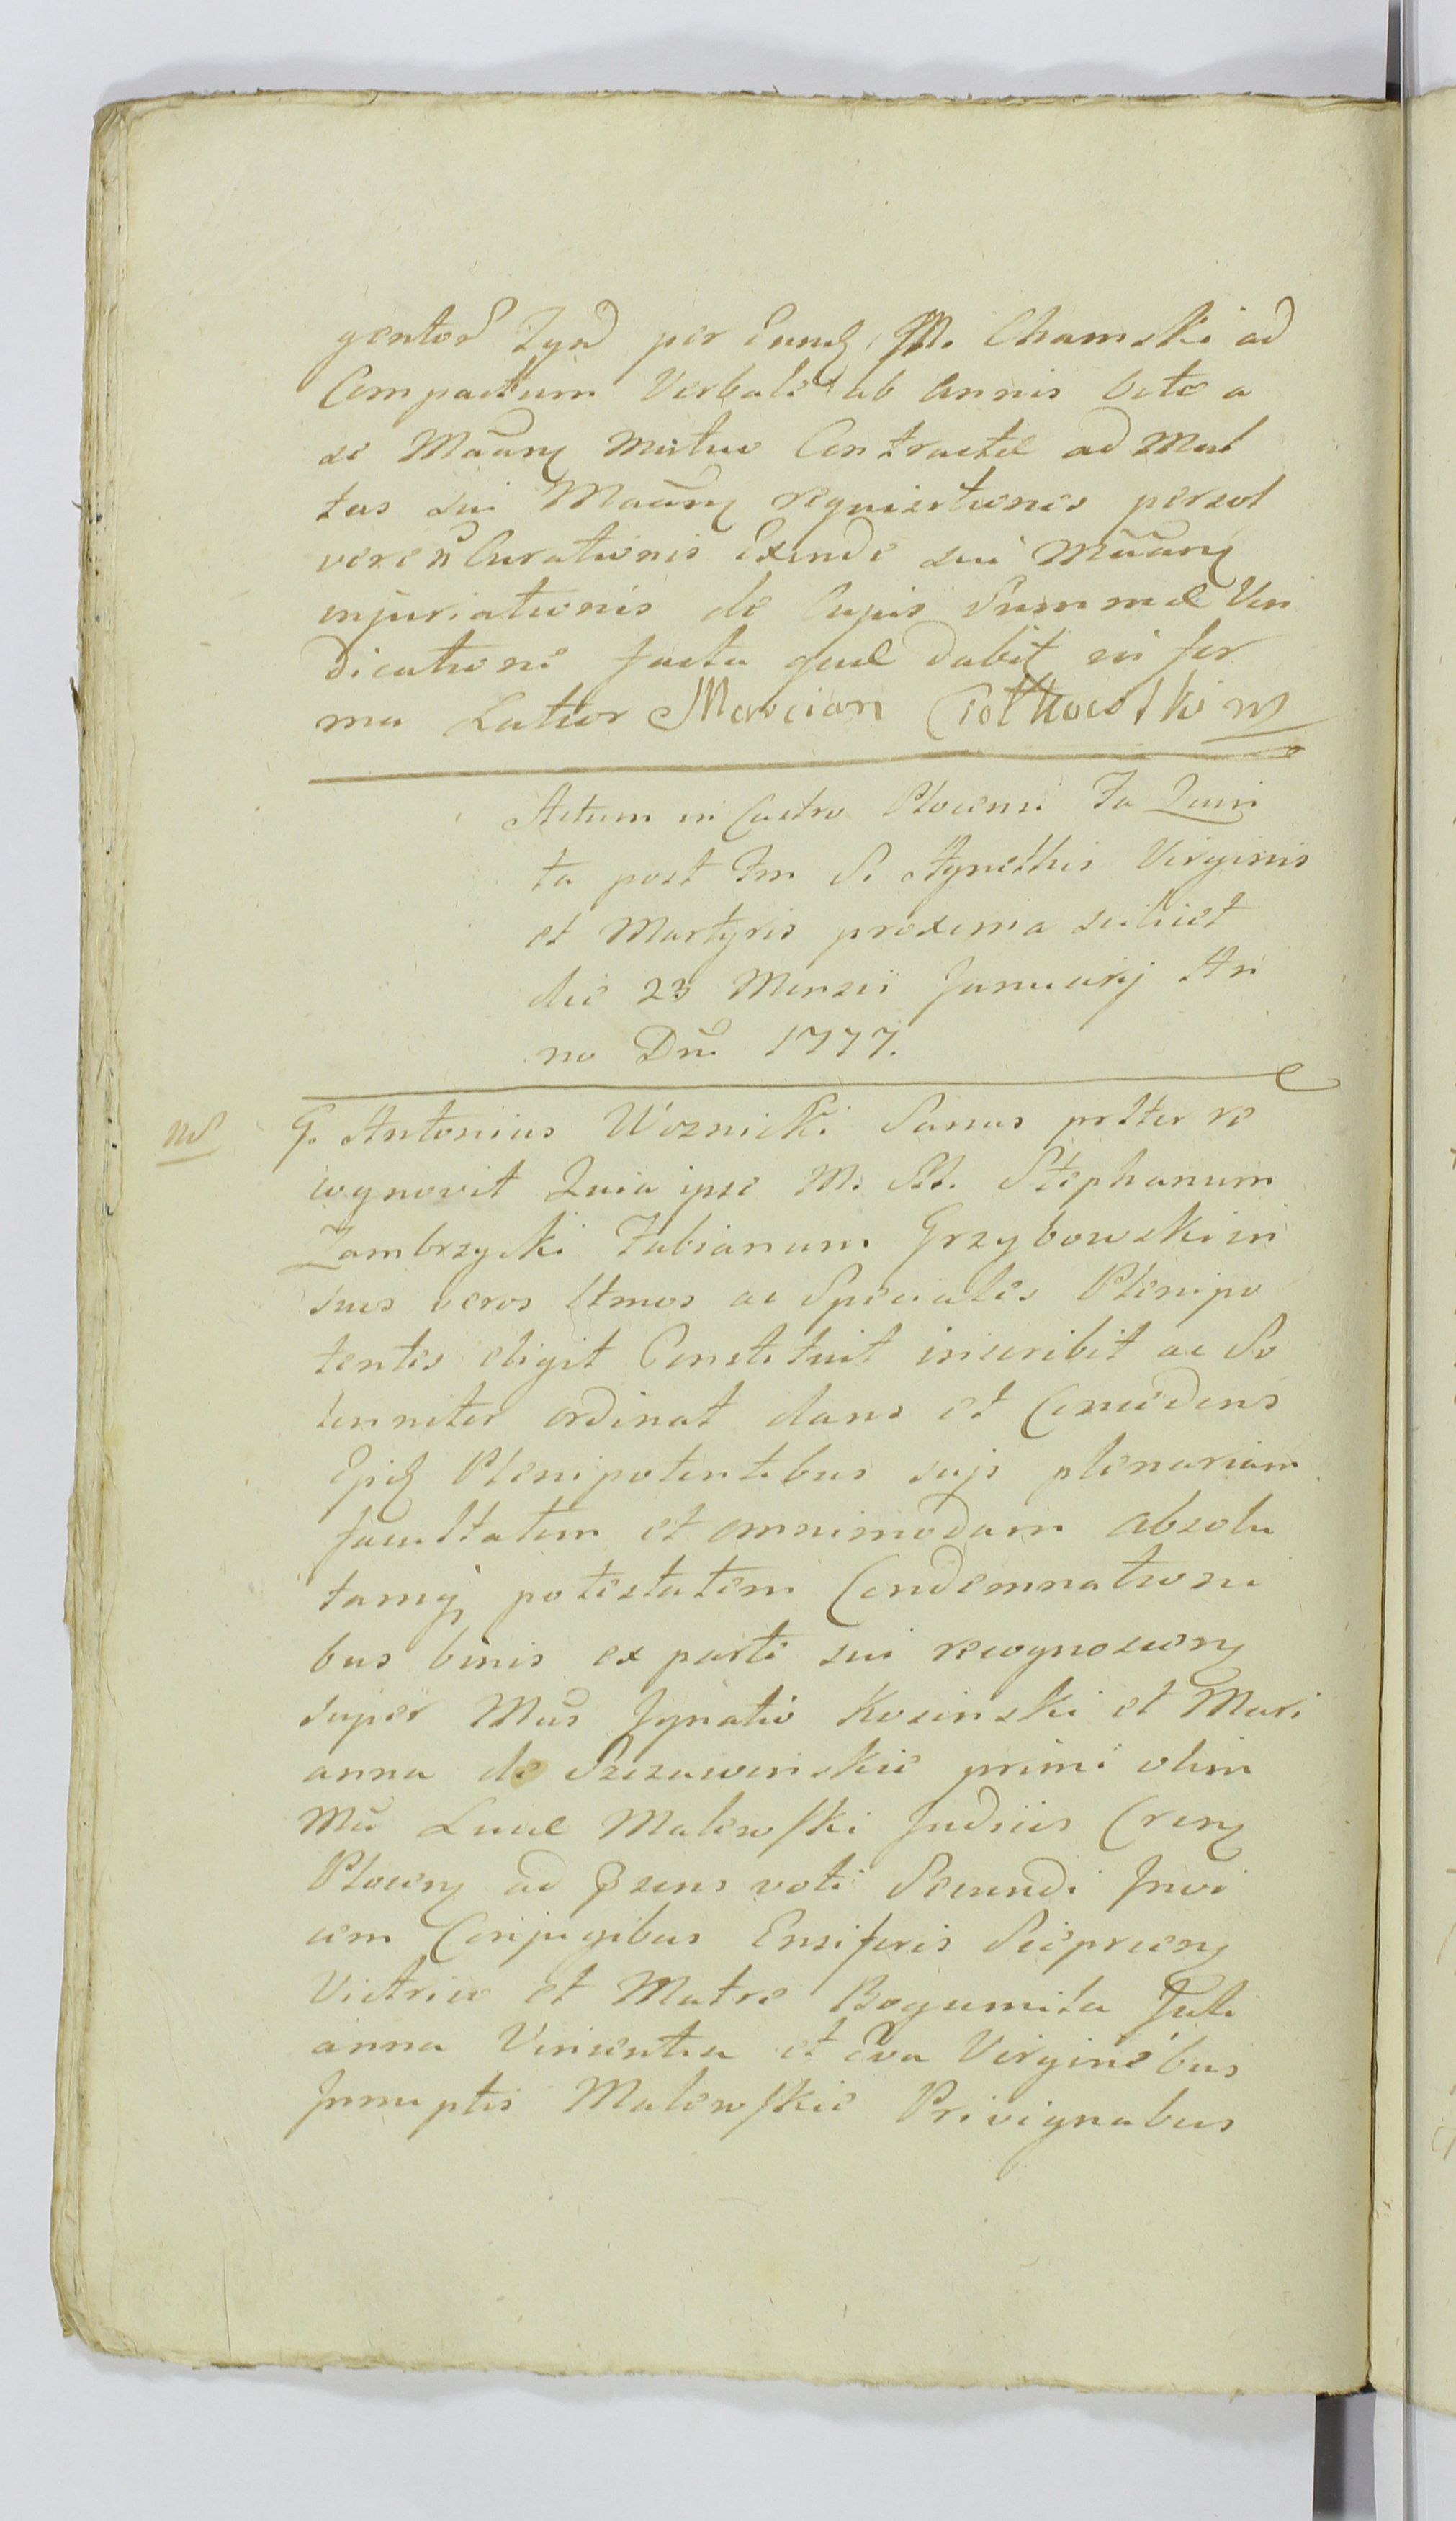 gentor per Eund M. Chamski ad
Compactum Verbale ab Annis Octo a
se mutuo Contractae ad Mul
tas sui requisitiones persol
veren Curationis Exinde sui
injuriationis de Cujus Summae Vin
dicatione facta quae dabit in for
ma Latior Marcian
Actum in Castro Plocensi Fa Quin
ta post Fm S. Agnethis Virginis
et Martyris proxima scilicet
die 23 Mensis Januarij An
no Dni 1777.
G. Antonius Woznicki Sanus re
cognovit Quia ipse M. Stephanum
Zambrzycki Fabianum Grzybowski in
suos veros ltmos ac Speciales Plenipo
tentes eligit Constituit inscribit ac So
lenniter ordinat dans et Concedens
Plenipotentibus suis plenariam
facultatem et omnimodam absolu
tamq potestatem Condemnationi
bus binis ex parte sui recognoscen
super Ignatio Kosinski et Mari
anna de primi olim
Lucae Malewski Judicis
Plocen ad voti Secundi Invi
cem Conjugibus Ensiferis Sieprcen
Victrico et Matre Bogumila Juli
anna Vincentia et Eva Virginibus
Innuptis Malewskie Privignabus